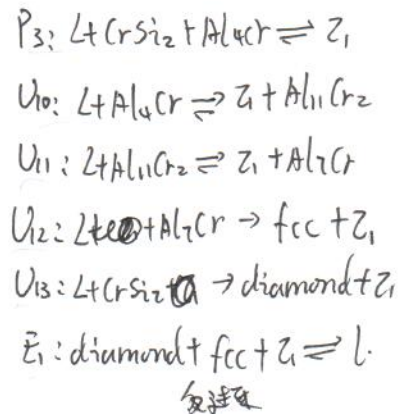 P3: L+CrSi2+Al4Cr⇌τ1
U10: L+Al4Cr⇌τ1+Al11Cr2
U11: L+Al11Cr2⇌τ1+Al7Cr
U12: L+Al7Cr→fcc+τ1
U13: L+CrSi2→diamond+τ1
E1: diamond+fcc+τ1⇌l.